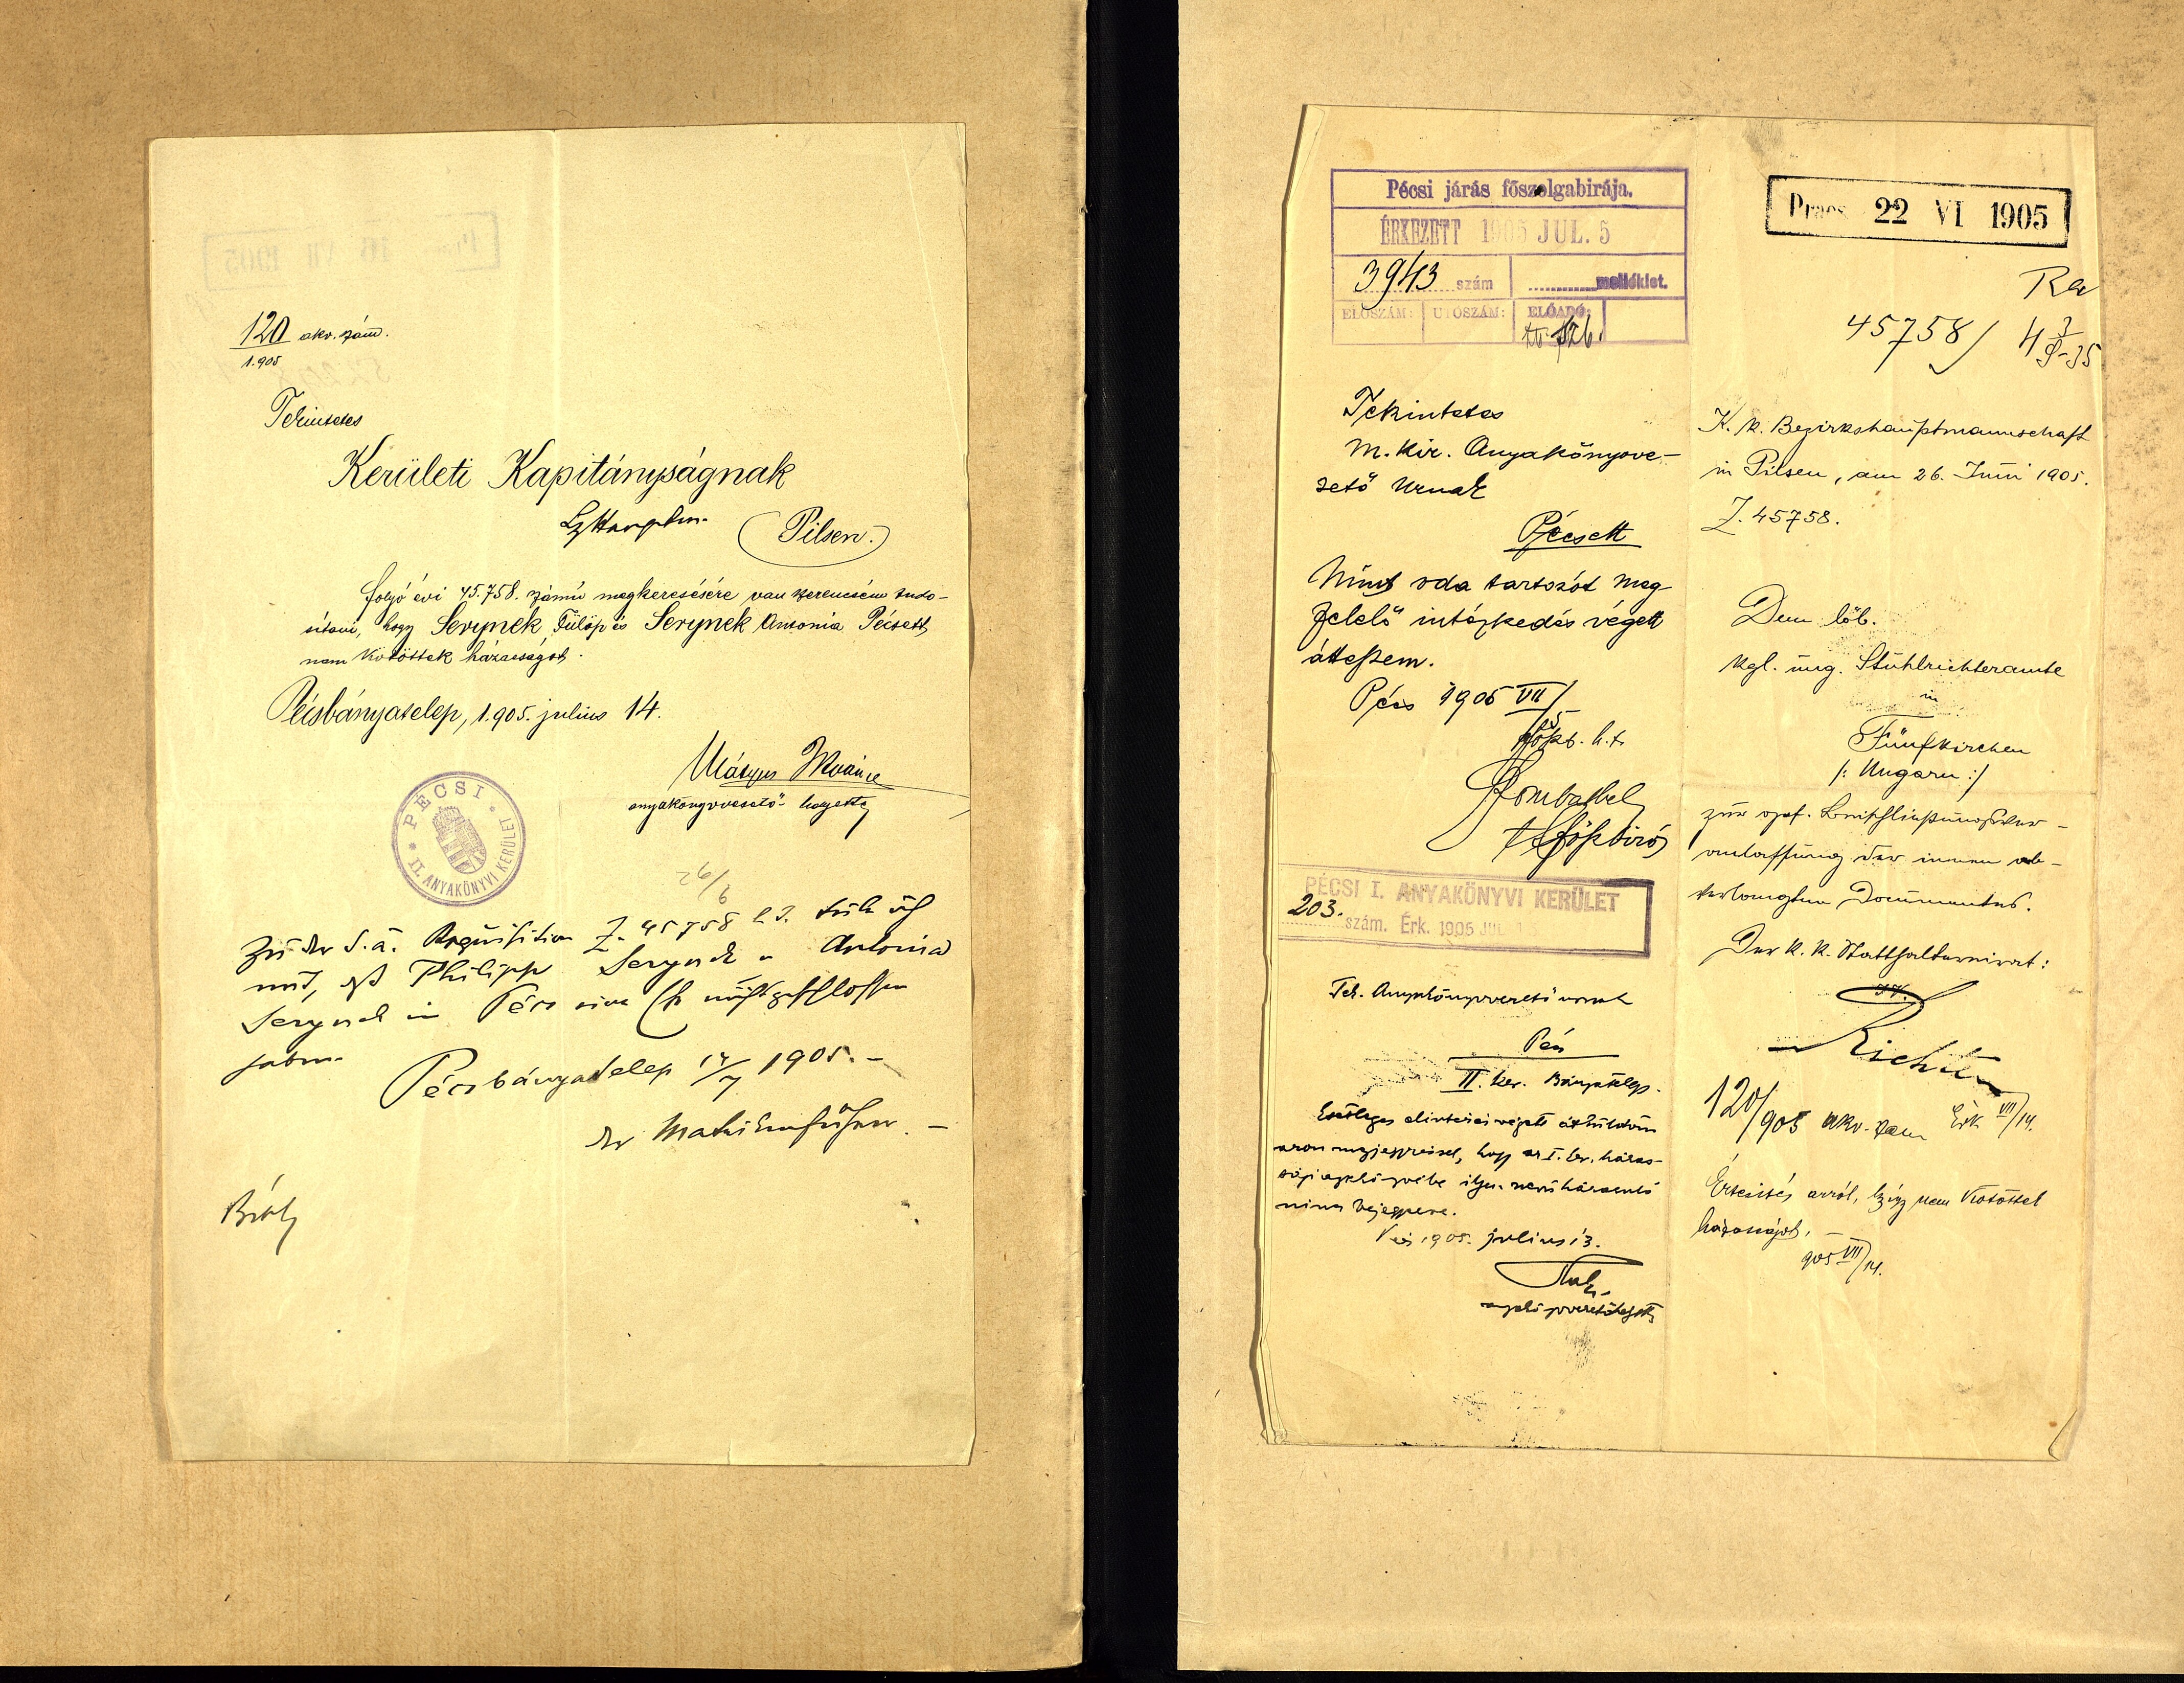 120 akv. szám.
1.905
Tekintetes
Kerületi Kapitányságnak
Pilsen.
folyó évi 45.758. számú megkeresésére van szerencsém tudo-
sítani, hogy Serynek Fülöp és Serynek Antonia Pécsett
nem kötöttek házasságot.
Pécsbányatelep, 1.905. julius 14.
Mátyus
anyakönyvvezető helyettes
PÉCSI
II. ANYAKÖNYVI KERÜLET
26/6
Zu der d. ä. Requisition Z. 45758 teile ich
mit, daß Philipp Serynek u Antonia
Serynek in Pécs eine Ehe nicht geschlossen
haben
Pécsbányatelep 14/7 1905. –
der Matrikenführer. –
Pécsi járás főszolgabirája.
ÉRKEZETT 1905 JUL. 5
3943 szám melléklet.
ELŐSZÁM: UTÓSZÁM: ELŐADÓ:
Tekintetes
M. kir. Anyakönyvve-
zető Urnak
Pécsett
Mint oda tartozót meg-
felelő intézkedés végett
átteszem.
Pécs 1905 VII/5
főszb. h.
főszbiró
PÉCSI I. ANYAKÖNYVI KERÜLET
203. szám. Érk. 1905 JUL
Tek. Anyakönyvvezető urnak
Pécs
II. ker. Bányatelep.
Esetleges elintézés végett áttküldöm
azon megjegyzéssel, hogy az I. ker. házas-
sági anyakönyvébe ilyen nevű házasuló
nincs bejegyezve.
Pécs 1905. julius 13.
anyakönyvvezetőhelyettes
Praes 22 VI 1905
45758/
K. k. Bezirkshauptmannschaft
in Pilsen, am 26. Juni 1905.
Z. 45758.
Dem löb.
kgl. ung. Stuhlrichteramte
in
Fünfkirchen
/: Ungarn :/
zur gef.
anlassung der innen ab-
verlangten Documentes.
Der k. k. Statthaltereirat:
Richter
120/905 akv. szám Érk VII/14.
Értesítés arról, hogy nem kötöttek
házasságot. –
905 VII/14.